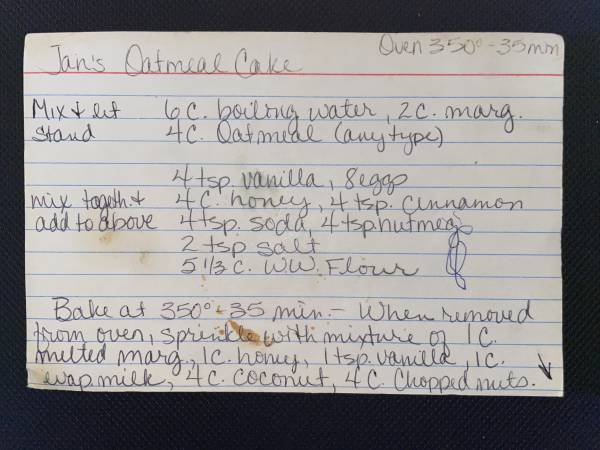 Oven 350° - 35 min
Jan's Oatmeal Cake
Mix & let 6 C. boiling water, 2 C. marg.
stand 4 C. Oatmeal (any type)
4 tsp. vanilla, 8 eggs
mix togeth. & 4 C. honey, 4 tsp. Cinnamon
add to above 4 tsp. soda, 4 tsp. nutmeg
2 tsp salt
5 1/3 C. W.W. Flour
Bake at 350° - 35 min. - When removed
from oven, sprinkle with mixture of 1 C.
melted marg., 1 C. honey, 1 tsp. vanilla, 1 C.
evap. milk, 4 C. Coconut, 4 C. Chopped nuts.